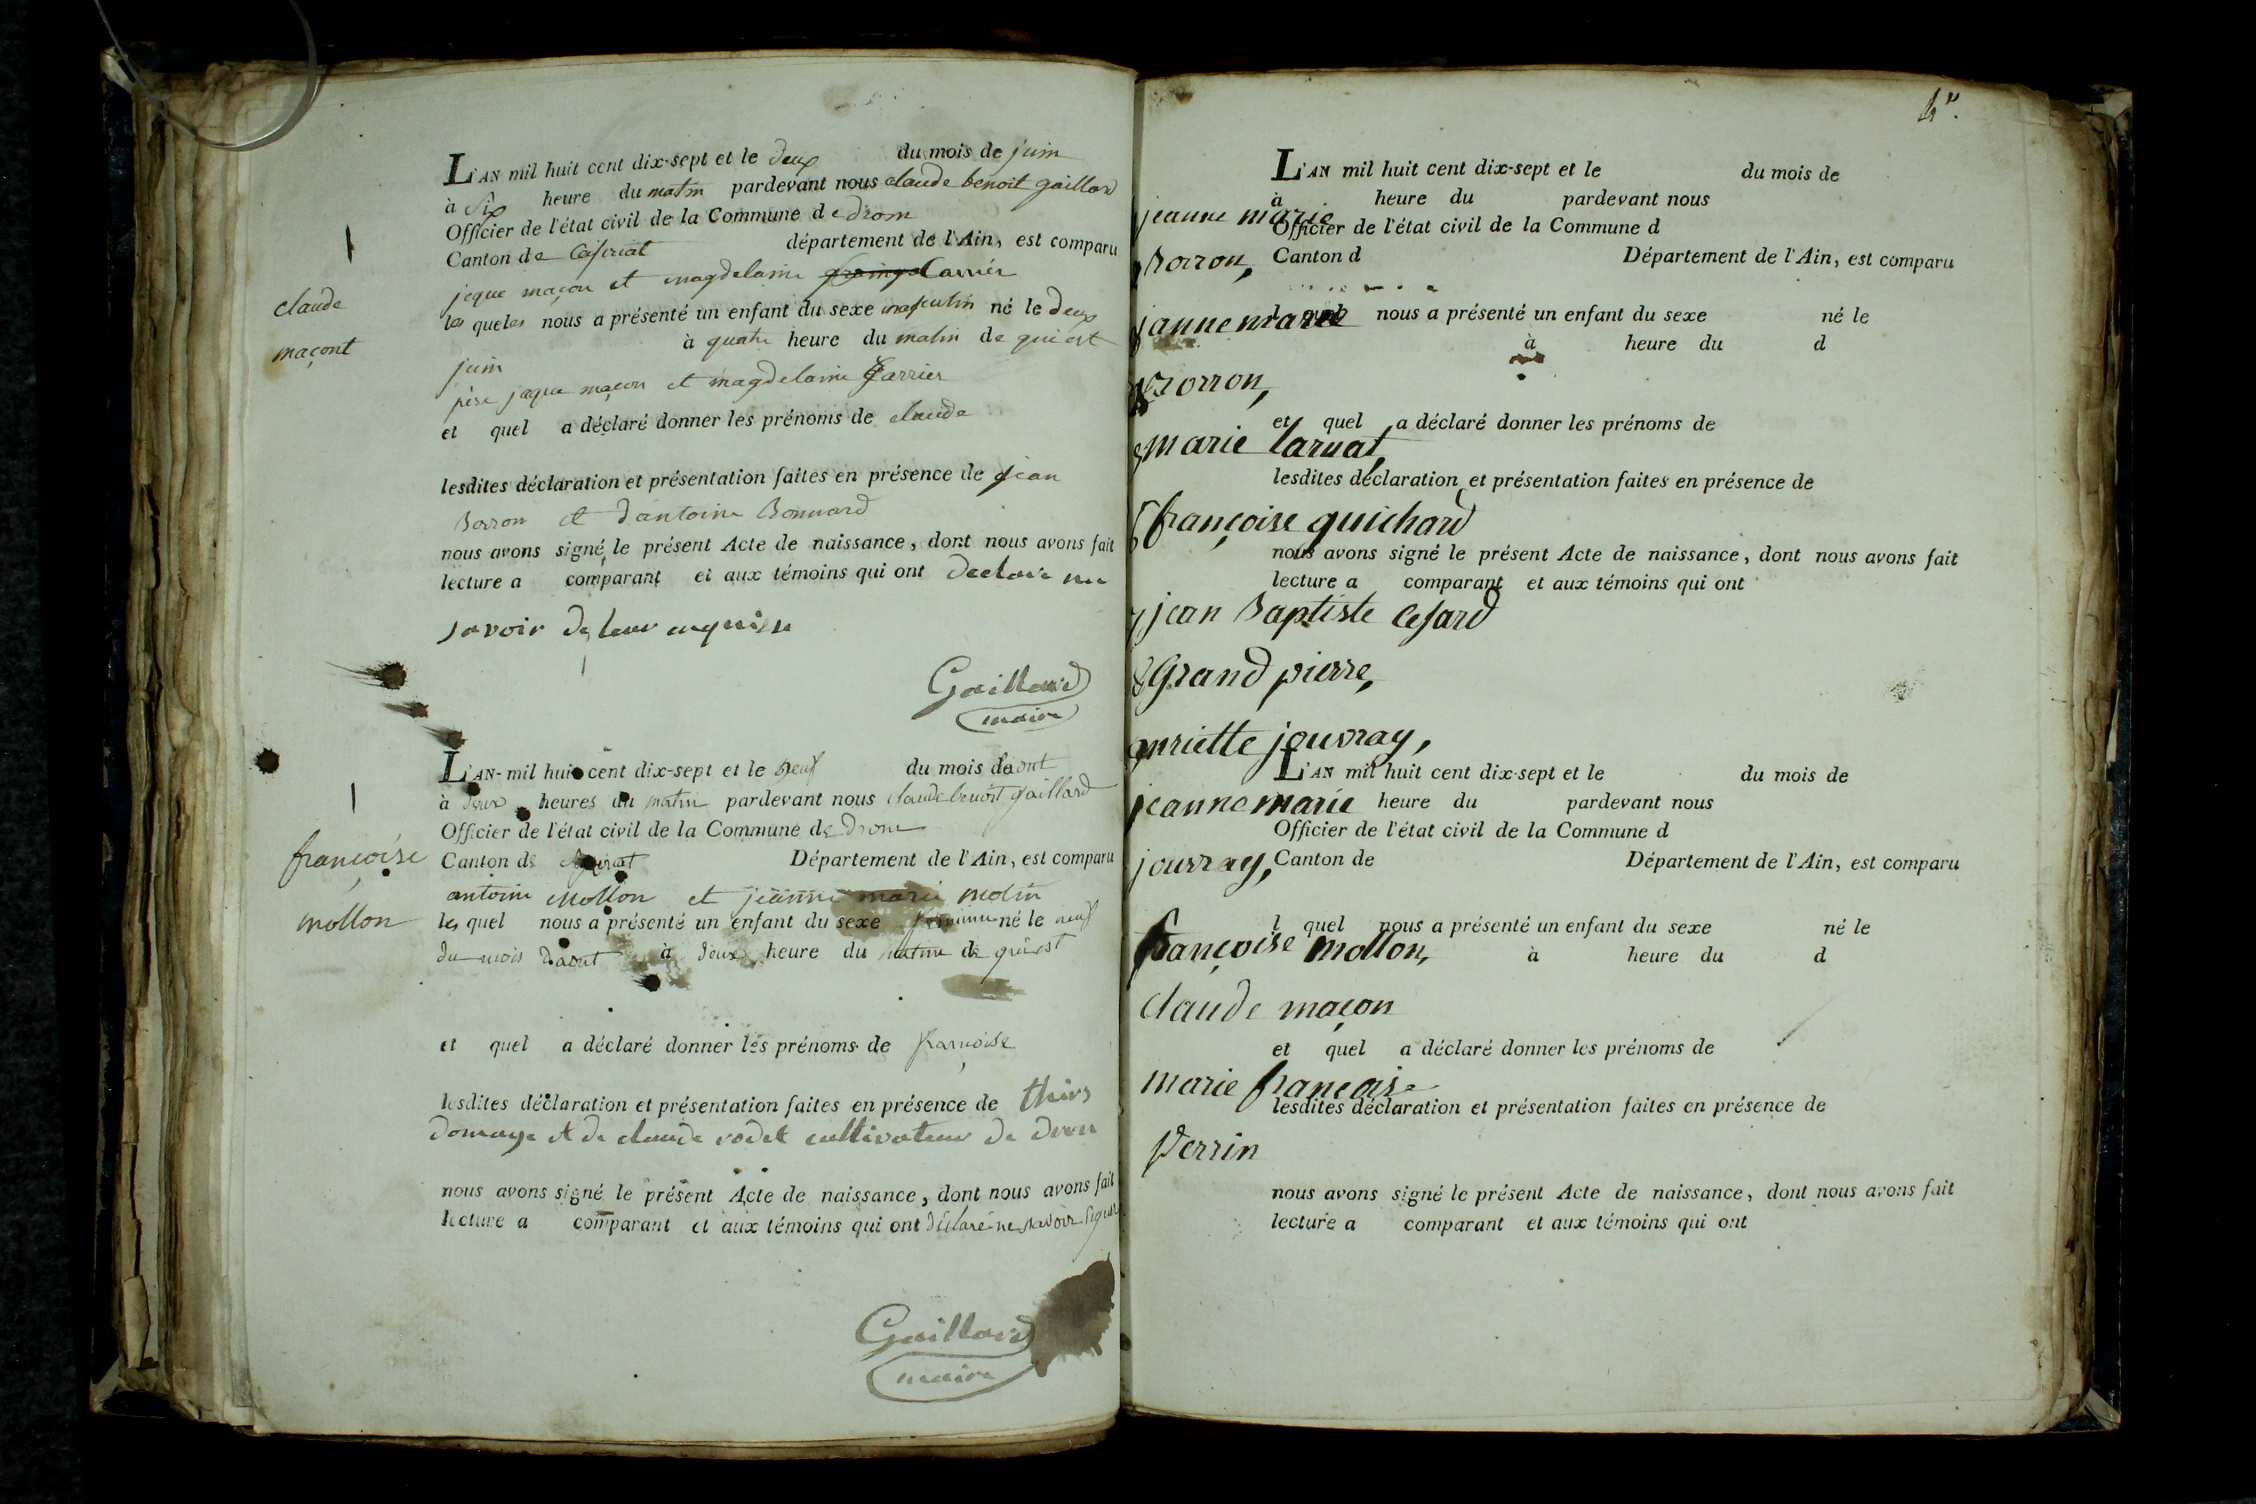 L'AN mil huit cent dix-sept et le deux du mois de juin
à six heure du matin pardevant nous claude benoit gaillard
Officier de l'état civil de la Commune de drom
Canton de département de l'Ain, est comparu
jeque maçon et magdelaine Carrier
les queles nous a présenté un enfant du sexe masculin né le deux
juin à quatre heure du matin de qui est
père jaque maçon et magdelaine Carrier
et quel a déclaré donner les prénoms de claude
lesdites déclaration et présentation faites en présence de jean
Borron et d'antoine Bonnard
nous avons signé le présent Acte de naissance, dont nous avons fait
lecture a comparant et aux témoins qui ont declare ne
savoir de leur enquise
Gaillard
maire
claude
maçont
L'AN mil huit cent dix-sept et le neuf du mois daout
à deux heures du matin pardevant nous claude benoit gaillard
Officier de l'état civil de la Commune de drom
Canton de Département de l'Ain, est comparu
antoine Mollon et jeanne marie molin
les quel nous a présenté un enfant du sexe né le neuf
du mois daout à deux heure du matin de qui est
et quel a déclaré donner les prénoms de
lesdites déclaration et présentation faites en présence de
domage et de claude rodet cultivateur de
nous avons signé le présent Acte de naissance, dont nous avons fait
lecture a comparant et aux témoins qui ont déclaré ne savoir
Gaillard
maire
françoise
mollon
L'AN mil huit cent dix-sept et le du mois de
à heure du pardevant nous
Officier de l'état civil de la Commune d
Canton d Département de l'Ain, est comparu
l quel nous a présenté un enfant du sexe né le
à heure du d
et quel a déclaré donner les prénoms de
lesdites déclaration et présentation faites en présence de
nous avons signé le présent Acte de naissance, dont nous avons fait
lecture a comparant et aux témoins qui ont
L'AN mil huit cent dix-sept et le du mois de
heure du pardevant nous
Officier de l'état civil de la Commune d
Canton de Département de l'Ain, est comparu
l quel nous a présenté un enfant du sexe né le
à heure du d
et quel a déclaré donner les prénoms de
lesdites déclaration et présentation faites en présence de
nous avons signé le présent Acte de naissance, dont nous avons fait
lecture a comparant et aux témoins qui ont
jeanne marie
Borron,
janne marie
Borron,
marie larnat,
françoise guichard
jean Baptiste Cesard
Grand pierre,
jouvray,
jeanne marie
jouvray,
françoise mollon,
claude maçon
marie françoise
Perrin